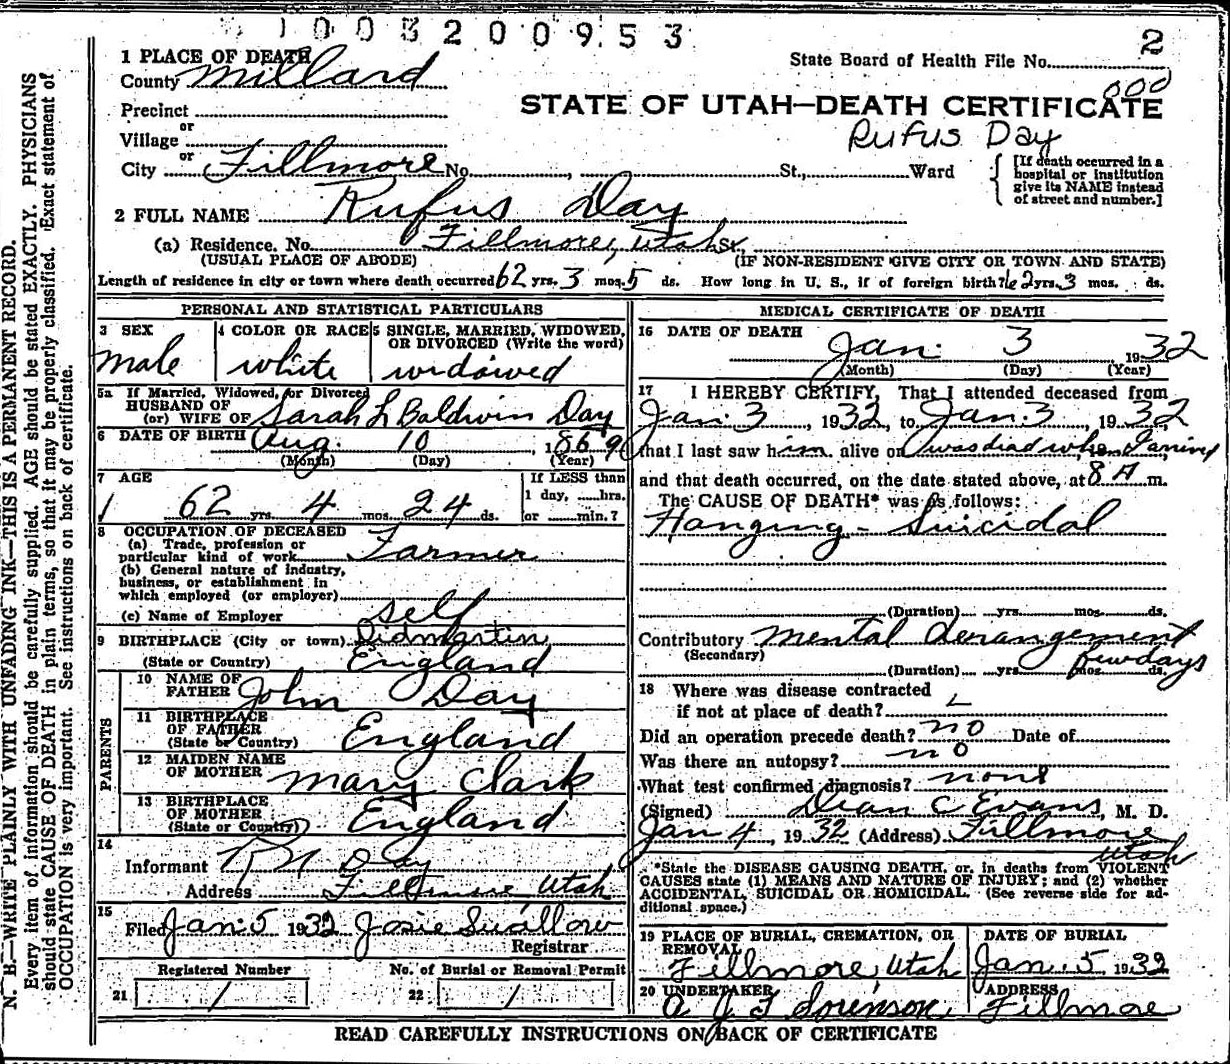 1003200953
2
1 PLACE OF DEATH
State Board of Health File No.
County Millard
000
Precinct
STATE OF UTAH—DEATH CERTIFICATE
or
Village
Rufus Day
or
City Fillmore No. , St., Ward
[If death occurred in a hospital or institution give its NAME instead of street and number.]
2 FULL NAME Rufus Day
(a) Residence. No. Fillmore, Utah St.,
(USUAL PLACE OF ABODE) (IF NON-RESIDENT GIVE CITY OR TOWN AND STATE)
Length of residence in city or town where death occurred 62 yrs. 3 mos. 5 ds. How long in U. S., if of foreign birth? 62 yrs. 3 mos. ds.
PERSONAL AND STATISTICAL PARTICULARS
3 SEX
male
4 COLOR OR RACE
white
5 SINGLE, MARRIED, WIDOWED, OR DIVORCED (Write the word)
widowed
5a If Married, Widowed, or Divorced
HUSBAND OF
(or) WIFE OF Sarah L Baldwin Day
6 DATE OF BIRTH Aug. 10, 1869
(Month) (Day) (Year)
7 AGE
62 yrs. 4 mos. 24 ds.
If LESS than
1 day, hrs.
or min.?
8 OCCUPATION OF DECEASED
(a) Trade, profession or
particular kind of work Farmer
(b) General nature of industry,
business, or establishment in
which employed (or employer)
(c) Name of Employer self
9 BIRTHPLACE (City or town)
(State or Country) England
PARENTS
10 NAME OF
FATHER John Day
11 BIRTHPLACE
OF FATHER
(State or Country) England
12 MAIDEN NAME
OF MOTHER Mary Clark
13 BIRTHPLACE
OF MOTHER
(State or Country) England
14
Informant Day
Address Fillmore Utah
15
Filed Jan. 5 1932 Josie Swallow
Registrar
Registered Number
21
No. of Burial or Removal Permit
22
MEDICAL CERTIFICATE OF DEATH
16 DATE OF DEATH
Jan. 3, 1932
(Month) (Day) (Year)
17 I HEREBY CERTIFY, That I attended deceased from
Jan. 3, 1932, to Jan. 3, 1932
that I last saw him alive on was dead when I arrived
and that death occurred, on the date stated above, at 8 A m.
The CAUSE OF DEATH* was as follows:
Hanging - Suicidal
(Duration) yrs. mos. ds.
Contributory Mental derangement
(Secondary)
few days
(Duration) yrs. mos. ds.
18 Where was disease contracted
if not at place of death?
Did an operation precede death? no Date of
Was there an autopsy? no
What test confirmed diagnosis? none
(Signed) Dean C Evans, M. D.
Jan 4, 1932 (Address) Fillmore
Utah
*State the DISEASE CAUSING DEATH, or, in deaths from VIOLENT
CAUSES state (1) MEANS AND NATURE OF INJURY; and (2) whether
ACCIDENTAL, SUICIDAL OR HOMICIDAL. (See reverse side for ad-
ditional space.)
19 PLACE OF BURIAL, CREMATION, OR
REMOVAL
Fillmore, Utah
DATE OF BURIAL
Jan. 5 1932
20 UNDERTAKER
Sorenson
ADDRESS
Fillmore
READ CAREFULLY INSTRUCTIONS ON BACK OF CERTIFICATE
N. B.—WRITE PLAINLY WITH UNFADING INK—THIS IS A PERMANENT RECORD.
Every item of information should be carefully supplied. AGE should be stated EXACTLY. PHYSICIANS
should state CAUSE OF DEATH in plain terms, so that it may be properly classified. Exact statement of
OCCUPATION is very important. See instructions on back of certificate.